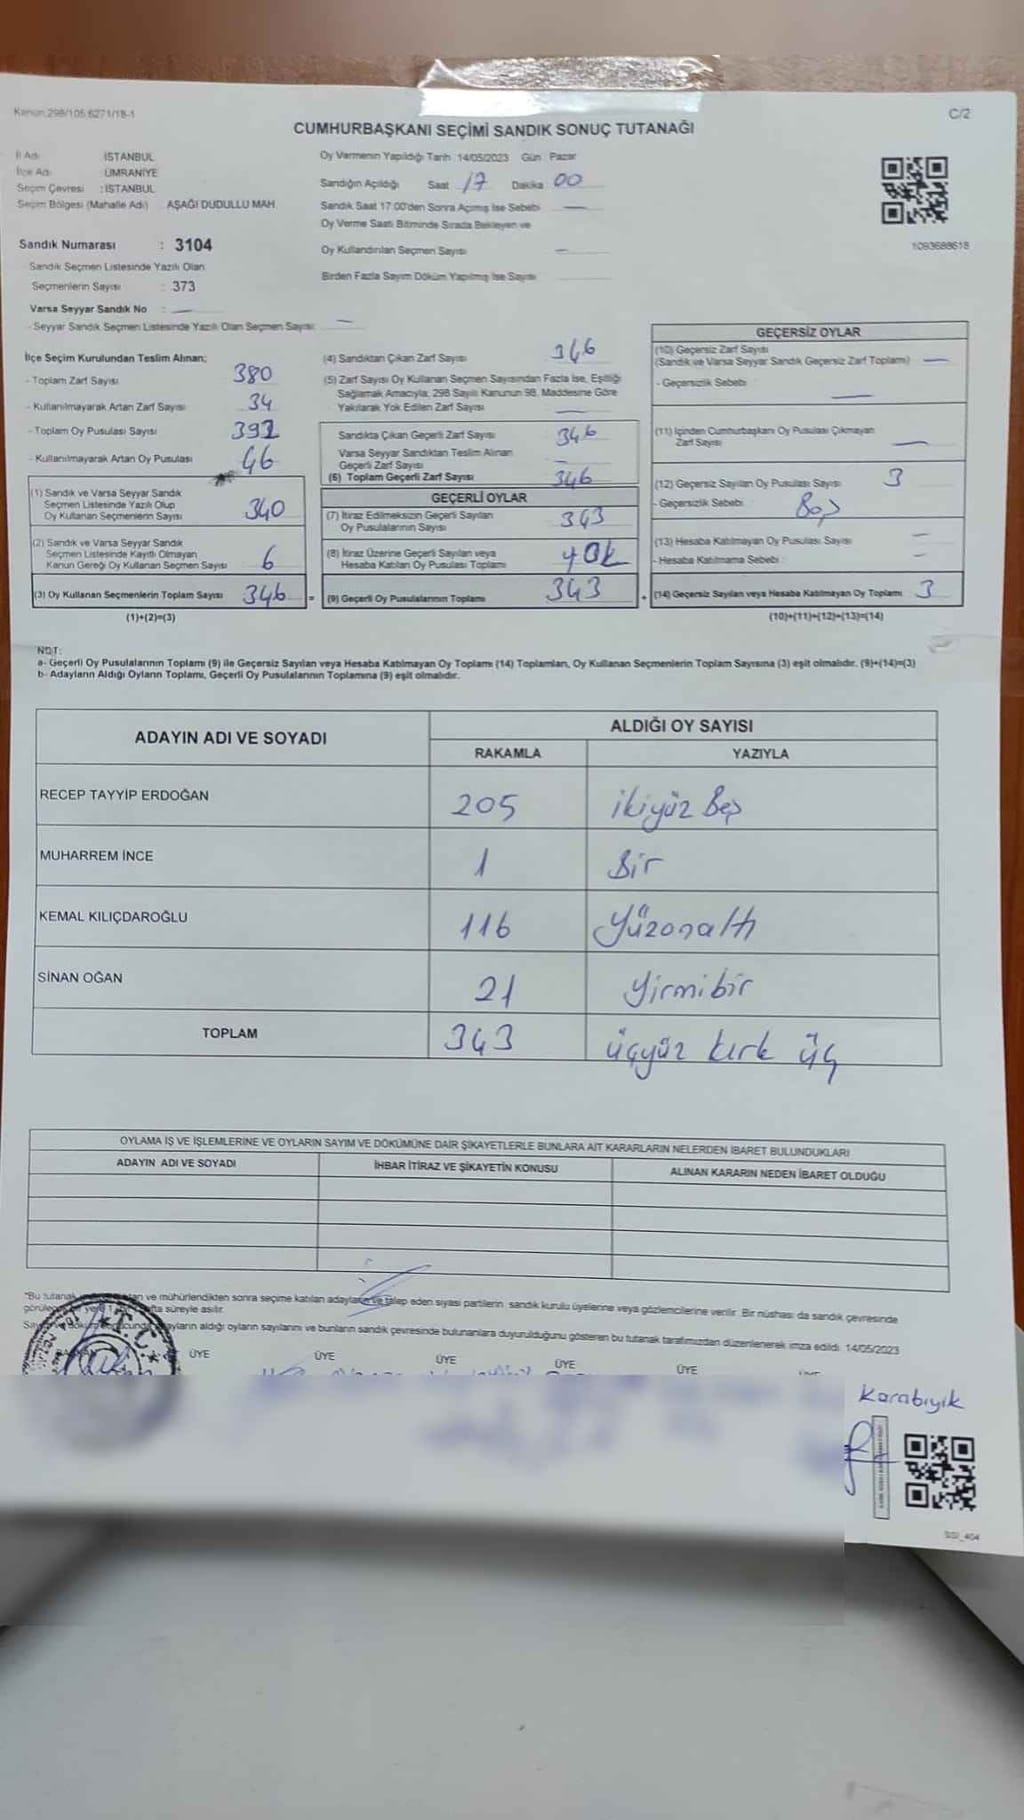 Kanun:298/105,6271/18-1
C/2
CUMHURBAŞKANI SEÇİMİ SANDIK SONUÇ TUTANAĞI
İl Adı İSTANBUL
İlçe Adı ÜMRANİYE
Seçim Çevresi : İSTANBUL
Seçim Bölgesi (Mahalle Adı) AŞAĞI DUDULLU MAH.
Sandık Numarası : 3104
Sandık Seçmen Listesinde Yazılı Olan
Seçmenlerin Sayısı : 373
Varsa Seyyar Sandık No : —
- Seyyar Sandık Seçmen Listesinde Yazılı Olan Seçmen Sayısı: —
Oy Vermenin Yapıldığı Tarih 14/05/2023 Gün Pazar
Sandığın Açıldığı Saat 17 Dakika 00
Sandık Saat 17:00'den Sonra Açılmış İse Sebebi —
Oy Verme Saati Bitiminde Sırada Bekleyen ve
Oy Kullandırılan Seçmen Sayısı —
Birden Fazla Sayım Döküm Yapılmış İse Sayısı
1093688618
İlçe Seçim Kurulundan Teslim Alınan;
- Toplam Zarf Sayısı 380
- Kullanılmayarak Artan Zarf Sayısı 34
- Toplam Oy Pusulası Sayısı 392
- Kullanılmayarak Artan Oy Pusulası 46
(1) Sandık ve Varsa Seyyar Sandık
Seçmen Listesinde Yazılı Olup
Oy Kullanan Seçmenlerin Sayısı 340
(2) Sandık ve Varsa Seyyar Sandık
Seçmen Listesinde Kayıtlı Olmayan
Kanun Gereği Oy Kullanan Seçmen Sayısı 6
(3) Oy Kullanan Seçmenlerin Toplam Sayısı 346 =
(1)+(2)=(3)
(4) Sandıktan Çıkan Zarf Sayısı 346
(5) Zarf Sayısı Oy Kullanan Seçmen Sayısından Fazla İse, Eşitliği
Sağlamak Amacıyla, 298 Sayılı Kanunun 98. Maddesine Göre
Yakılarak Yok Edilen Zarf Sayısı —
Sandıkta Çıkan Geçerli Zarf Sayısı 346
Varsa Seyyar Sandıktan Teslim Alınan
Geçerli Zarf Sayısı —
(6) Toplam Geçerli Zarf Sayısı 346
GEÇERLİ OYLAR
(7) İtiraz Edilmeksizin Geçerli Sayılan
Oy Pusulalarının Sayısı 343
(8) İtiraz Üzerine Geçerli Sayılan veya
Hesaba Katılan Oy Pusulası Toplamı YOK
(9) Geçerli Oy Pusulalarının Toplamı 343 +
GEÇERSİZ OYLAR
(10) Geçersiz Zarf Sayısı
(Sandık ve Varsa Seyyar Sandık Geçersiz Zarf Toplamı) —
- Geçersizlik Sebebi —
(11) İçinden Cumhurbaşkanı Oy Pusulası Çıkmayan
Zarf Sayısı —
(12) Geçersiz Sayılan Oy Pusulası Sayısı 3
- Geçersizlik Sebebi Boş
(13) Hesaba Katılmayan Oy Pusulası Sayısı —
- Hesaba Katılmama Sebebi —
(14) Geçersiz Sayılan veya Hesaba Katılmayan Oy Toplamı 3
(10)+(11)+(12)+(13)=(14)
NOT:
a- Geçerli Oy Pusulalarının Toplamı (9) ile Geçersiz Sayılan veya Hesaba Katılmayan Oy Toplamı (14) Toplamları, Oy Kullanan Seçmenlerin Toplam Sayısına (3) eşit olmalıdır. (9)+(14)=(3)
b- Adayların Aldığı Oyların Toplamı, Geçerli Oy Pusulalarının Toplamına (9) eşit olmalıdır.
ADAYIN ADI VE SOYADI ALDIĞI OY SAYISI
RAKAMLA YAZIYLA
RECEP TAYYİP ERDOĞAN 205 ikiyüz Beş
MUHARREM İNCE 1 Bir
KEMAL KILIÇDAROĞLU 116 Yüzonaltı
SİNAN OĞAN 21 Yirmibir
TOPLAM 343 üçyüz kırk üç
OYLAMA İŞ VE İŞLEMLERİNE VE OYLARIN SAYIM VE DÖKÜMÜNE DAİR ŞİKAYETLERLE BUNLARA AİT KARARLARIN NELERDEN İBARET BULUNDUKLARI
ADAYIN ADI VE SOYADI İHBAR İTİRAZ VE ŞİKAYETİN KONUSU ALINAN KARARIN NEDEN İBARET OLDUĞU
"Bu tutanak ve mühürlendikten sonra seçime katılan adayların ve talep eden siyasi partilerin sandık kurulu üyelerine veya gözlemcilerine verilir. Bir nüshası da sandık çevresinde
süreyle asılır.
adayların aldığı oyların sayılarını ve bunların sandık çevresinde bulunanlara duyurulduğunu gösteren bu tutanak tarafımızdan düzenlenerek imza edildi. 14/05/2023
T.C.
ÜYE ÜYE ÜYE ÜYE ÜYE
Karabıyık